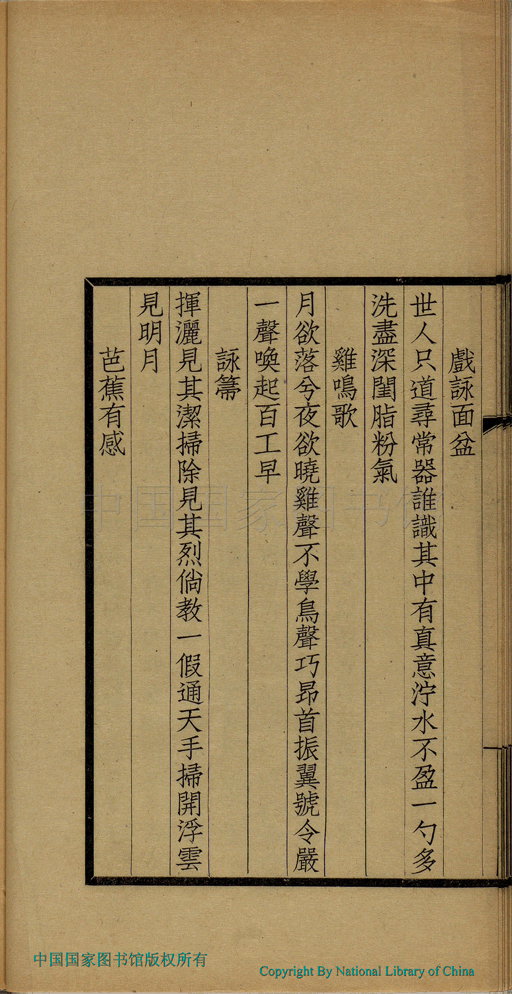 戲詠面盆
世人只道尋常器誰識其中有真意泞水不盈一勺多
洗盡深閨脂粉氣
雞鳴歌
月欲落兮夜欲曉雞聲不學鳥聲巧昂首振翼號令嚴
一聲喚起百工早
詠箒
揮灑見其潔掃除見其烈倘教一假通天手掃開浮雲
見明月
芭蕉有感
中国国家图书馆
中国国家图书馆版权所有
Copyright By National Library of China